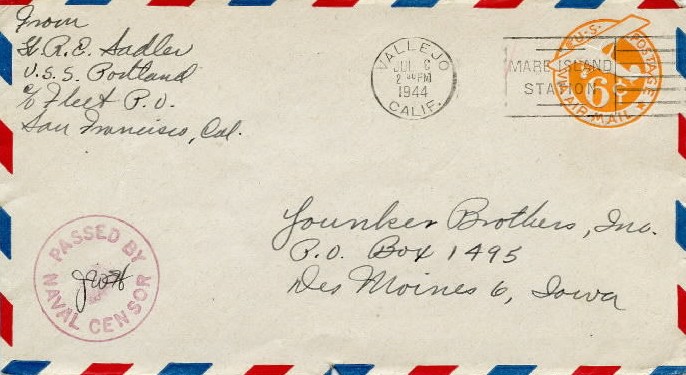 From
R.E. Sadler
U.S.S. Portland
c/o Fleet P.O.
San Francisco, Cal.
VALLEJO
JUL 6
2 PM
1944
CALIF.
MARE ISLAND
STATION
U.S. POSTAGE
6c
VIA AIR MAIL
Younker Brothers, Inc.
P.O. Box 1495
Des Moines 6, Iowa
PASSED BY
NAVAL CENSOR